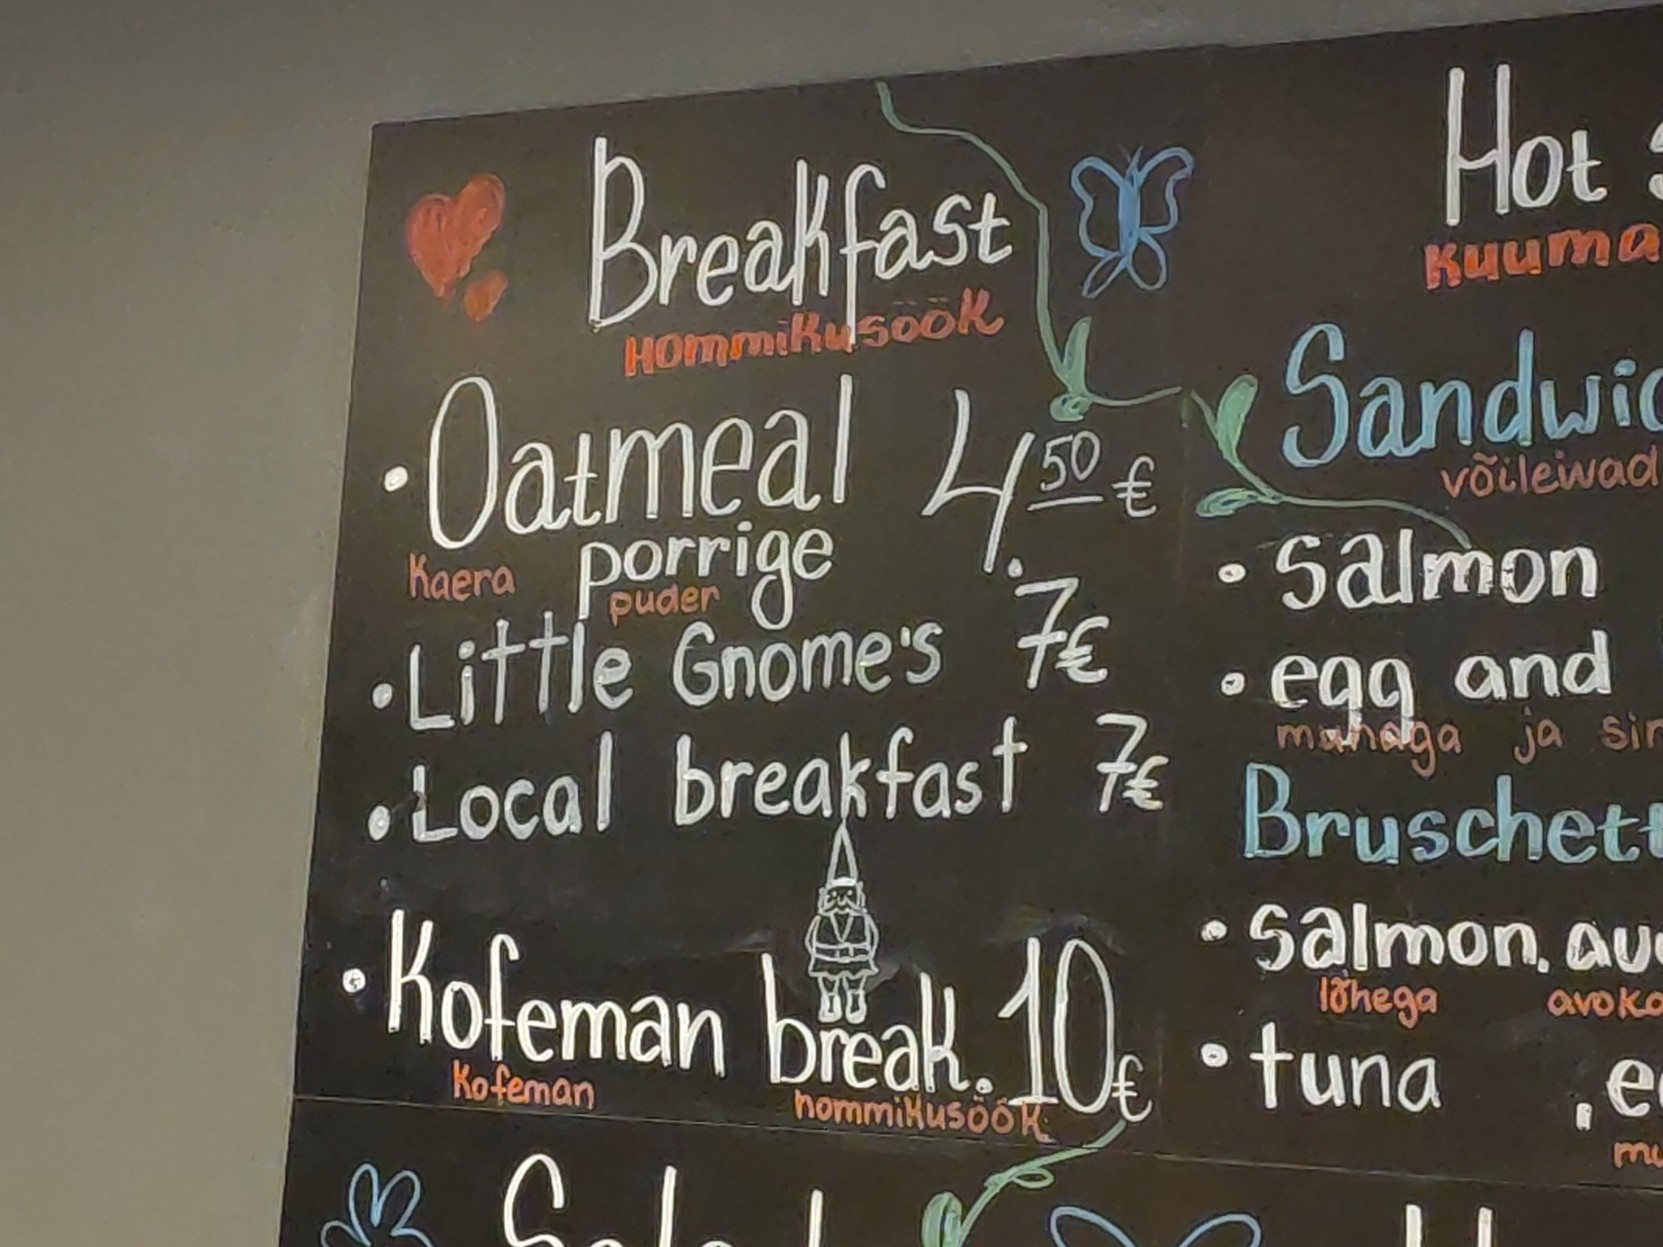 Breakfast
HommiKusööK
• Oatmeal 4.50 €
Kaera porrige
puder
• Little Gnome's 7€
• Local breakfast 7€
• Kofeman break. 10€
Kofeman hommiKusööK
Hot
Kuuma
Sandwic
võileiwad
• salmon
• egg and
munaga ja sin
Bruschett
• salmon, avo
lõhega avoka
• tuna , eg
mu